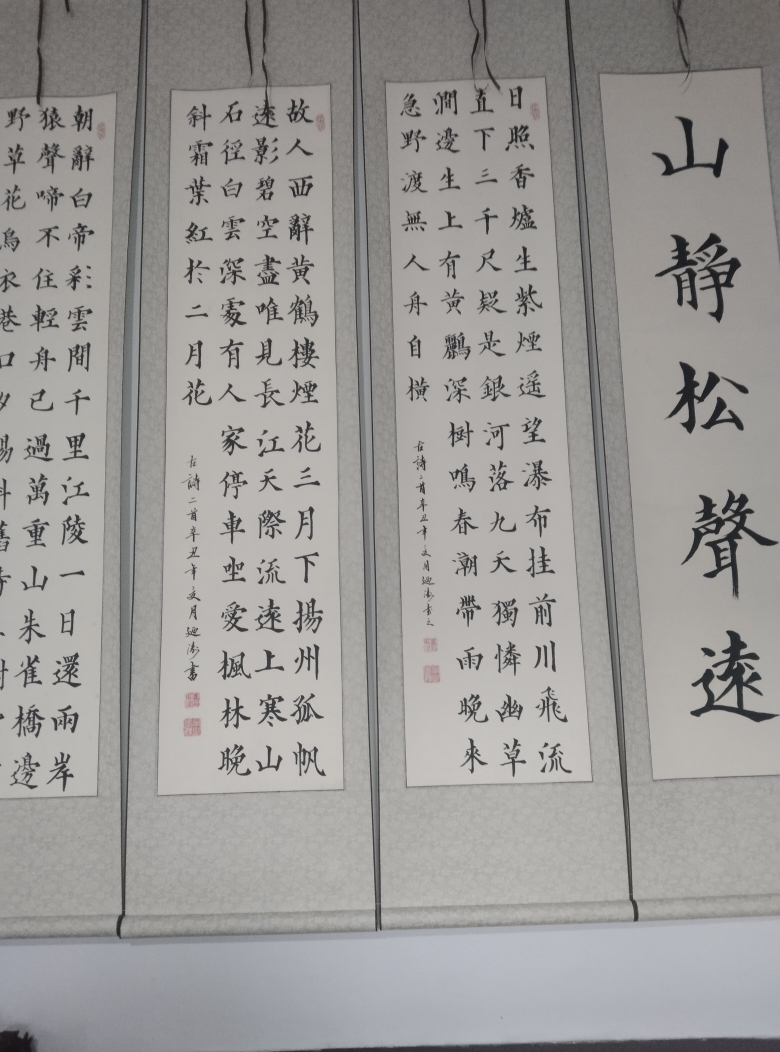 山靜松聲遠
日照香爐生紫煙遥望瀑布挂前川飛流
直下三千尺疑是銀河落九天獨憐幽草
澗邊生上有黄鸝深樹鳴春潮帶雨晚來
急野渡無人舟自橫
古詩二首辛丑年
故人西辭黄鶴樓煙花三月下揚州孤帆
遠影碧空盡唯見長江天際流遠上寒山
石徑白雲深處有人家停車坐愛楓林晚
斜霜葉紅於二月花
古詩二首辛丑年
朝辭白帝彩雲間千里江陵一日還兩岸
猿聲啼不住輕舟已過萬重山朱雀橋邊
野草花烏衣巷口夕陽斜舊時